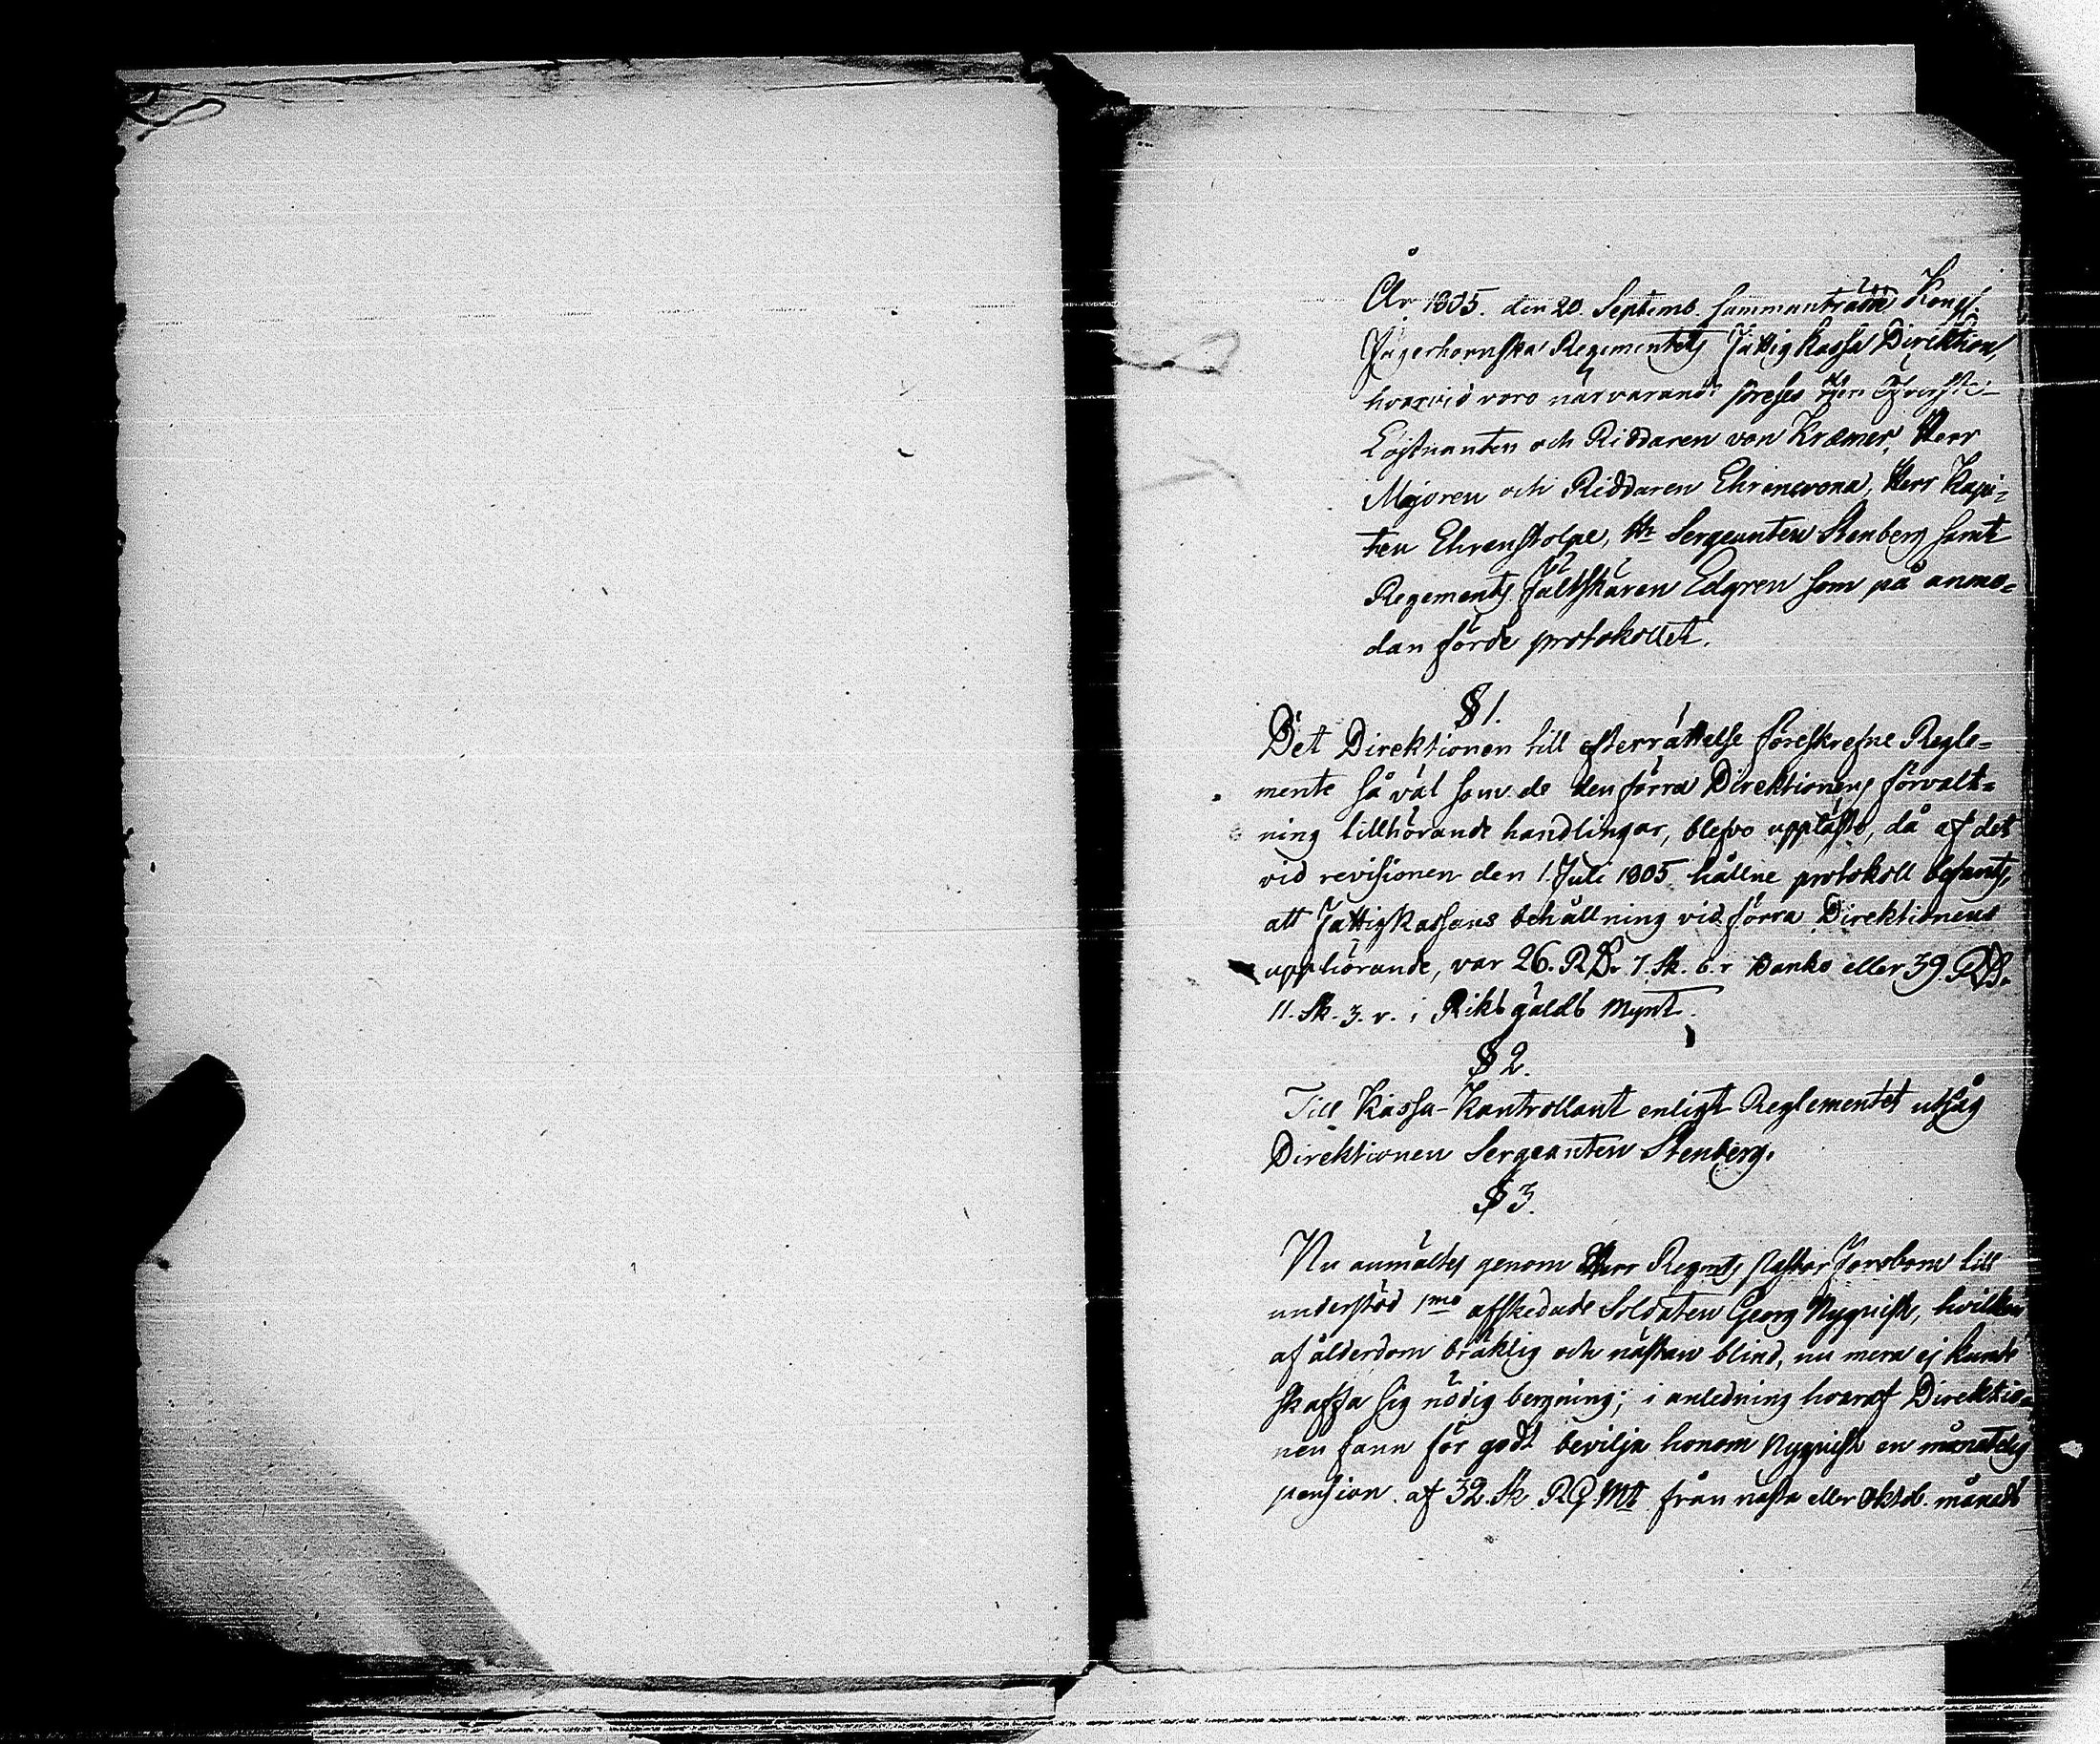 År 1805. den 20. Septemb. sammanträdde Kongl.
Jägerhornska Regementets Fattig Kassa Direktion,
hvarvid voro närvarande preses Herr Öfverste-
Löjtnanten och Riddaren von Kræmer, Herr
Majoren och Riddaren Ehrencrona, Herr Kapi=
ten Ehrenstolpe, Hr Sergeanten Stenberg samt
Regements Fältskären Edgren som på anmo=
dan förde protokollet.
§ 1.
Det Direktionen till efterrättelse föreskrefne Regle=
mente så väl som de den förra Direktionens förvalt=
ning tillhörande handlingar, blefvo uppläste, då af det
vid revisionen den 1. Juli 1805 hållne protokoll befants,
att Fattigkassans behållning vid förra Direktionens
upphörande, var 26. RD. 7. sk. 6. r Banko eller 39. RD.
11. sk. 3. r. i Riksgälds Mynt.
§ 2.
Till Kassa-Kontrollant enligt Reglementet utsåg
Direktionen Sergeanten Stenberg.
§ 3.
Nu anmältes genom Herr Regmts Pastor till
understöd 1mo afskedade Soldaten Georg Nyqvist, hvilken
af ålderdom bräklig och nästan blind, nu mera ej kunde
skaffa sig nödig bergning; i anledning hvaraf Direktio=
nen fann för godt bevilja honom Nyqvist en månatelig
pension af 32. sk RG Mt från nästa eller Oktob. månads